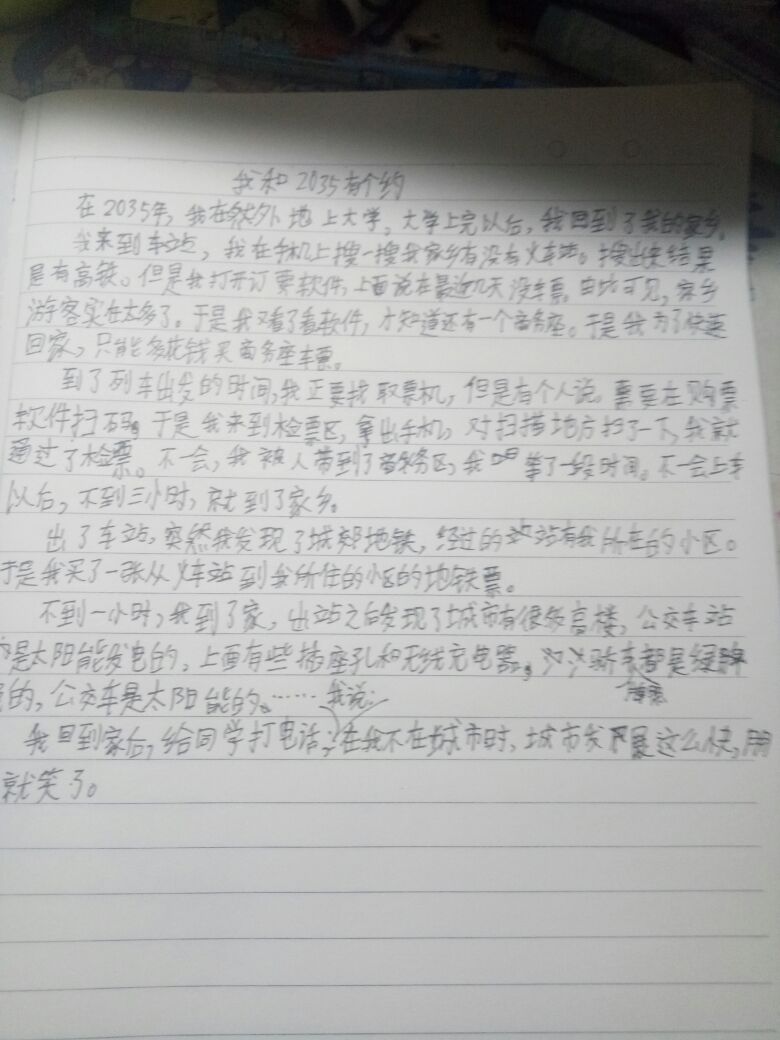 我和2035有个约
在2035年，我在外地上大学，大学上完以后，我回到了我的家乡。
我来到车站，我在手机上搜一搜我家乡有没有火车站。搜出来结果
是有高铁。但是我打开订票软件，上面说在最近几天没车票，由此可见，家乡
游客实在太多了。于是我又看了看软件，才知道还有一个商务座。于是我为了快速
回家，只能多花钱买商务座车票。
到了列车出发的时间，我正要找取票机，但是有个人说，票要在购票
软件扫码，于是我来到检票区，拿出手机，对扫描地方扫了一下，我就
通过了检票。不一会，我被人带到了商务区，我等了一段时间。不一会上车
以后，不到三小时，就到了家乡。
出了车站，突然我发现了城郊地铁，经过的站有我所在的小区。
于是我买了一张从火车站到我所住的小区的地铁票。
不到一小时，我到了家，出站之后发现了城市有很多高楼，公交车站
是太阳能发电的，上面有些插座孔和无线充电器，轿车都是绿牌
的，公交车是太阳能的……
我回到家后，给同学打电话，我说：在我不在城市时，城市发展这么快，
就笑了。